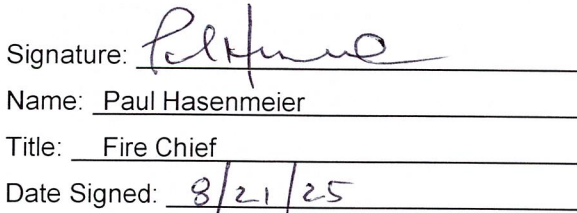 Signature:
Name: Paul Hasenmeier
Title: Fire Chief
Date Signed: 8/21/25